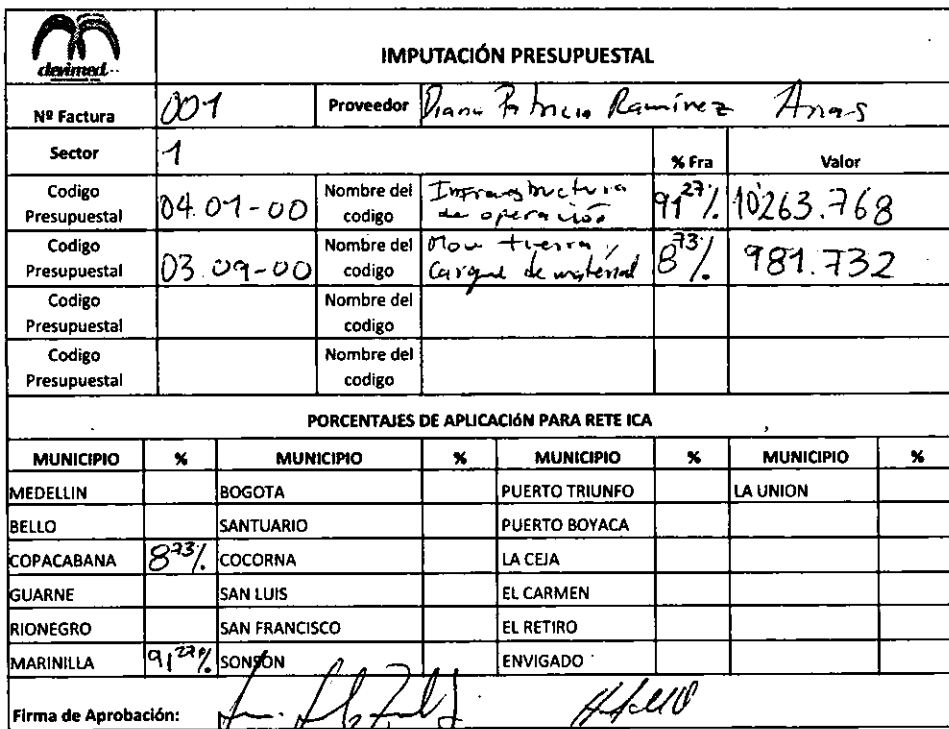 devimed
IMPUTACIÓN PRESUPUESTAL
Nº Factura 001 Proveedor Diana Patricia Ramínez Arias
Sector 1 % Fra Valor
Codigo Presupuestal 04.01-00 Nombre del codigo Infraestructura de operación 91,27% 10'263.768
Codigo Presupuestal 03.09-00 Nombre del codigo Mov tierra, Cargue de material 8,73% 981.732
Codigo Presupuestal Nombre del codigo
Codigo Presupuestal Nombre del codigo
PORCENTAJES DE APLICACIÓN PARA RETE ICA
MUNICIPIO % MUNICIPIO % MUNICIPIO % MUNICIPIO %
MEDELLIN BOGOTA PUERTO TRIUNFO LA UNION
BELLO SANTUARIO PUERTO BOYACA
COPACABANA 8,73% COCORNA LA CEJA
GUARNE SAN LUIS EL CARMEN
RIONEGRO SAN FRANCISCO EL RETIRO
MARINILLA 91,27% SONSON ENVIGADO
Firma de Aprobación: